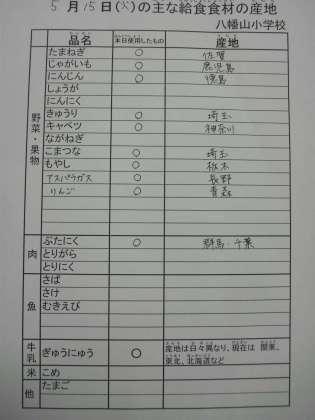 5月15日(火)の主な給食食材の産地
八幡山小学校
品名 本日使用したもの 産地
野菜・果物
たまねぎ ○ 佐賀
じゃがいも ○ 鹿児島
にんじん ○ 徳島
しょうが
にんにく
きゅうり ○ 埼玉
キャベツ ○ 神奈川
ながねぎ
こまつな ○ 埼玉
もやし ○ 栃木
アスパラガス ○ 長野
りんご ○ 青森
肉
ぶたにく ○ 群馬・千葉
とりがら
とりにく
魚
さば
さけ
むきえび
牛乳 ぎゅうにゅう ○ 産地は日々異なり、現在は 関東、
東北、北海道など
米 こめ
他 たまご